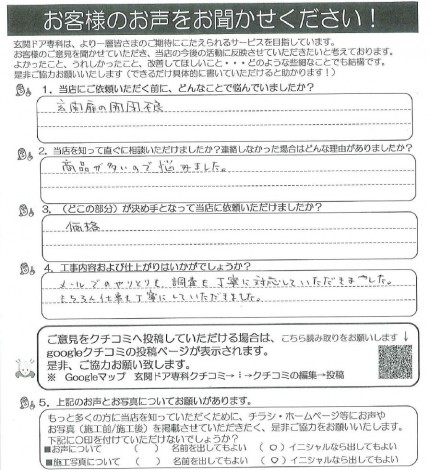 お客様のお声をお聞かせください！
玄関ドア専科は、より一層皆さまのご期待にこたえられるサービスを目指しています。
お客様のご意見を聞かせていただき、当店の今後の活動に反映させていただきたいと考えております。
よかったこと、うれしかったこと、改善してほしいこと・・・どのような些細なことでも結構です。
是非ご協力お願いいたします（できるだけ具体的に書いていただけると助かります！）
1．当店にご依頼いただく前に、どんなことで悩んでいましたか？
玄関扉の開閉不良
2．当店を知って直ぐに相談いただけましたか？連絡しなかった場合はどんな理由がありましたか？
商品が多いので悩みました。
3．（どこの部分）が決め手となって当店に依頼いただけましたか？
価格
4．工事内容および仕上がりはいかがでしょうか？
メールでのやりとりも、調査も丁寧に対応していただきました。
もちろん仕事も丁寧にしていただきました。
ご意見をクチコミへ投稿していただける場合は、こちら読み取りをお願いします↓
googleクチコミの投稿ページが表示されます。
是非、ご協力お願い致します。
※ Googleマップ 玄関ドア専科クチコミ→⋮→クチコミの編集→投稿
5．上記のお声とお写真についてお願いがあります。
もっと多くの方に当店を知っていただくために、チラシ・ホームページ等にお声や
お写真（施工前/施工後）を掲載させていただきたく、是非ご協力をお願いします。
下記に〇印を付けていただけないでしょうか？
■お声について （ ） 名前を出してもよい （〇）イニシャルなら出してもよい
■施工写真について （ ） 名前を出してもよい （〇）イニシャルなら出してもよい